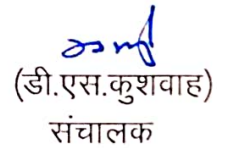 (डी.एस.कुशवाह)
संचालक